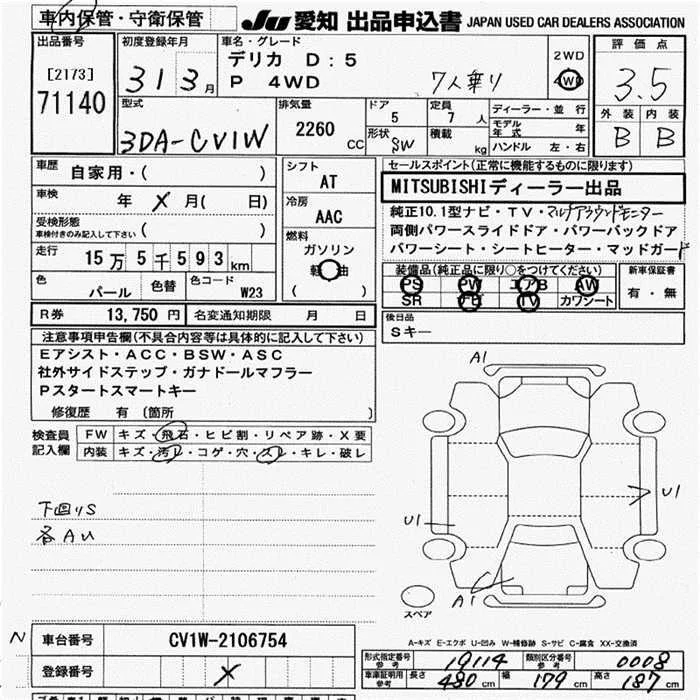 車内保管・守衛保管
JU 愛知 出品申込書 JAPAN USED CAR DEALERS ASSOCIATION
出品番号
[2173]
71140
初度登録年月
31 3月
車名・グレード
デリカ D:5
P 4WD
7人乗り
2WD
4WD
評価点
3.5
外装 内装
B B
型式
3DA-CV1W
排気量
2260 CC
ドア
5
形状
SW
定員
7 人
積載
kg
ディーラー・並行
モデル年式 年
ハンドル 左・右
車歴
自家用・( )
車検
年 X 月( 日)
受検形態
車検付きのみ記入して下さい ( )
走行
15万5千593km
色
パール
色替
色コード
W23
シフト
AT
冷房
AAC
燃料
ガソリン
軽油
( )
セールスポイント(正常に機能するものに限ります)
MITSUBISHIディーラー出品
純正10.1型ナビ・TV・マルチアラウンドモニター
両側パワースライドドア・パワーバックドア
パワーシート・シートヒーター・マッドガード
装備品(純正品に限り○をつけてください)
PS PW エアB AW
SR ナビ TV カワシート
新車保証書
有・無
後日品
Sキー
R券 13,750円 名変通知期限 月 日
注意事項申告欄(不具合内容等は具体的に記入して下さい)
Eアシスト・ACC・BSW・ASC
社外サイドステップ・ガナドールマフラー
Pスタートスマートキー
修復歴 有(箇所 )
検査員記入欄
FW キズ・飛石・ヒビ割・リペア跡・X要
内装 キズ・汚レ・コゲ・穴・スレ・キレ・破レ
下回りS
各AU
A1
U1
U1
A1
スペア
N
車台番号 CV1W-2106754
登録番号 X
A-キズ E-エクボ U-凹み W-補修跡 S-サビ C-腐食 XX-交換済
形式指定番号 参考 19114 類別区分番号 参考 0008
車庫証明用 参考 長さ 480 cm 幅 179 cm 高さ 187 cm